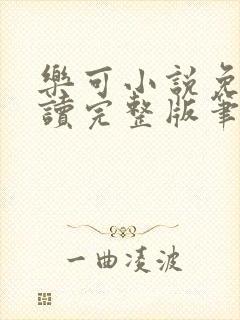 樂可小說免
讀完整版筆
一曲凌波